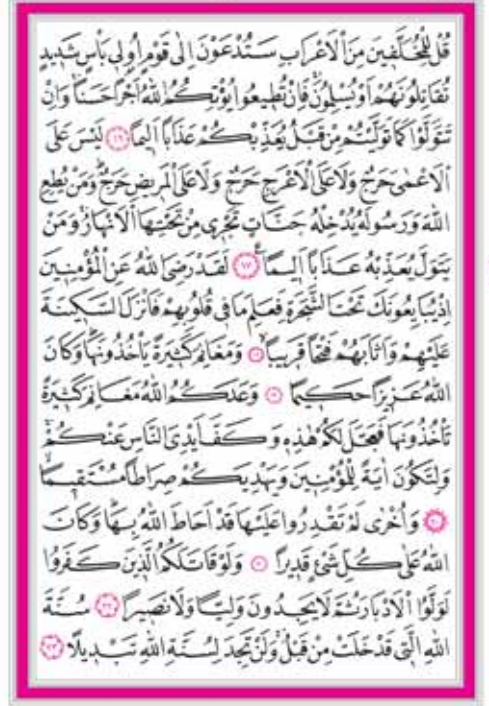 قُلْ لِلْمُخَلَّفِينَ مِنَ الْاَعْرَابِ سَتُدْعَوْنَ اِلٰى قَوْمٍ اُو۬لِي بَأْسٍ شَدِيدٍ
تُقَاتِلُونَهُمْ اَوْ يُسْلِمُونَۚ فَاِنْ تُطِيعُوا يُؤْتِكُمُ اللّٰهُ اَجْرًا حَسَنًاۚ وَاِنْ
تَتَوَلَّوْا كَمَا تَوَلَّيْتُمْ مِنْ قَبْلُ يُعَذِّبْكُمْ عَذَابًا اَلِيمًا ﴿١٦﴾ لَيْسَ عَلَى
الْاَعْمٰى حَرَجٌ وَلَا عَلَى الْاَعْرَجِ حَرَجٌ وَلَا عَلَى الْمَرِيضِ حَرَجٌۜ وَمَنْ يُطِعِ
اللّٰهَ وَرَسُولَهُ يُدْخِلْهُ جَنَّاتٍ تَجْرِي مِنْ تَحْتِهَا الْاَنْهَارُۚ وَمَنْ
يَتَوَلَّ يُعَذِّبْهُ عَذَابًا اَلِيمًا۟ ﴿١٧﴾ لَقَدْ رَضِيَ اللّٰهُ عَنِ الْمُؤْمِنِينَ
اِذْ يُبَايِعُونَكَ تَحْتَ الشَّجَرَةِ فَعَلِمَ مَا فِي قُلُوبِهِمْ فَاَنْزَلَ السَّكِينَةَ
عَلَيْهِمْ وَاَثَابَهُمْ فَتْحًا قَرِيبًاۙ ﴿١٨﴾ وَمَغَانِمَ كَثِيرَةً يَأْخُذُونَهَاۜ وَكَانَ
اللّٰهُ عَزِيزًا حَكِيمًا ﴿١٩﴾ وَعَدَكُمُ اللّٰهُ مَغَانِمَ كَثِيرَةً
تَأْخُذُونَهَا فَعَجَّلَ لَكُمْ هٰذِهِ وَكَفَّ اَيْدِيَ النَّاسِ عَنْكُمْۚ
وَلِتَكُونَ اٰيَةً لِلْمُؤْمِنِينَ وَيَهْدِيَكُمْ صِرَاطًا مُسْتَقِيمًاۙ
﴿٢٠﴾ وَاُخْرٰى لَمْ تَقْدِرُوا عَلَيْهَا قَدْ اَحَاطَ اللّٰهُ بِهَاۜ وَكَانَ
اللّٰهُ عَلٰى كُلِّ شَيْءٍ قَدِيرًا ﴿٢١﴾ وَلَوْ قَاتَلَكُمُ الَّذِينَ كَفَرُوا
لَوَلَّوُا الْاَدْبَارَ ثُمَّ لَا يَجِدُونَ وَلِيًّا وَلَا نَصِيرًا ﴿٢٢﴾ سُنَّةَ
اللّٰهِ الَّتِي قَدْ خَلَتْ مِنْ قَبْلُۚ وَلَنْ تَجِدَ لِسُنَّةِ اللّٰهِ تَبْدِيلًا ﴿٢٣﴾